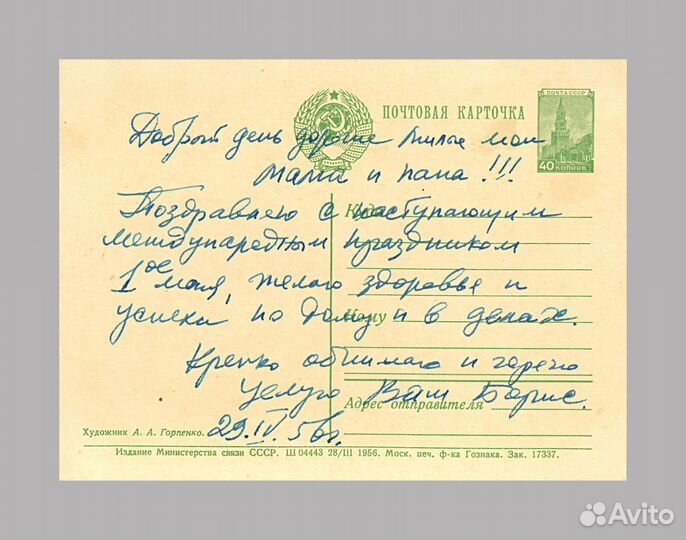 ПОЧТА СССР
ПОЧТОВАЯ КАРТОЧКА
40 КОПЕЕК
Добрый день дорогие милые мои
Мама и папа!!!
Куда
Поздравляю с наступающим
международным праздником
1ое мая, желаю здоровья и
Кому
успеха по дому и в делах.
Крепко обнимаю и горячо
целую Ваш Борис.
Адрес отправителя
29.IV.56г.
Художник А. А. Горпенко.
Издание Министерства связи СССР. Ш 04443 28/III 1956. Моск. печ. ф-ка Гознака. Зак. 17337.
Avito